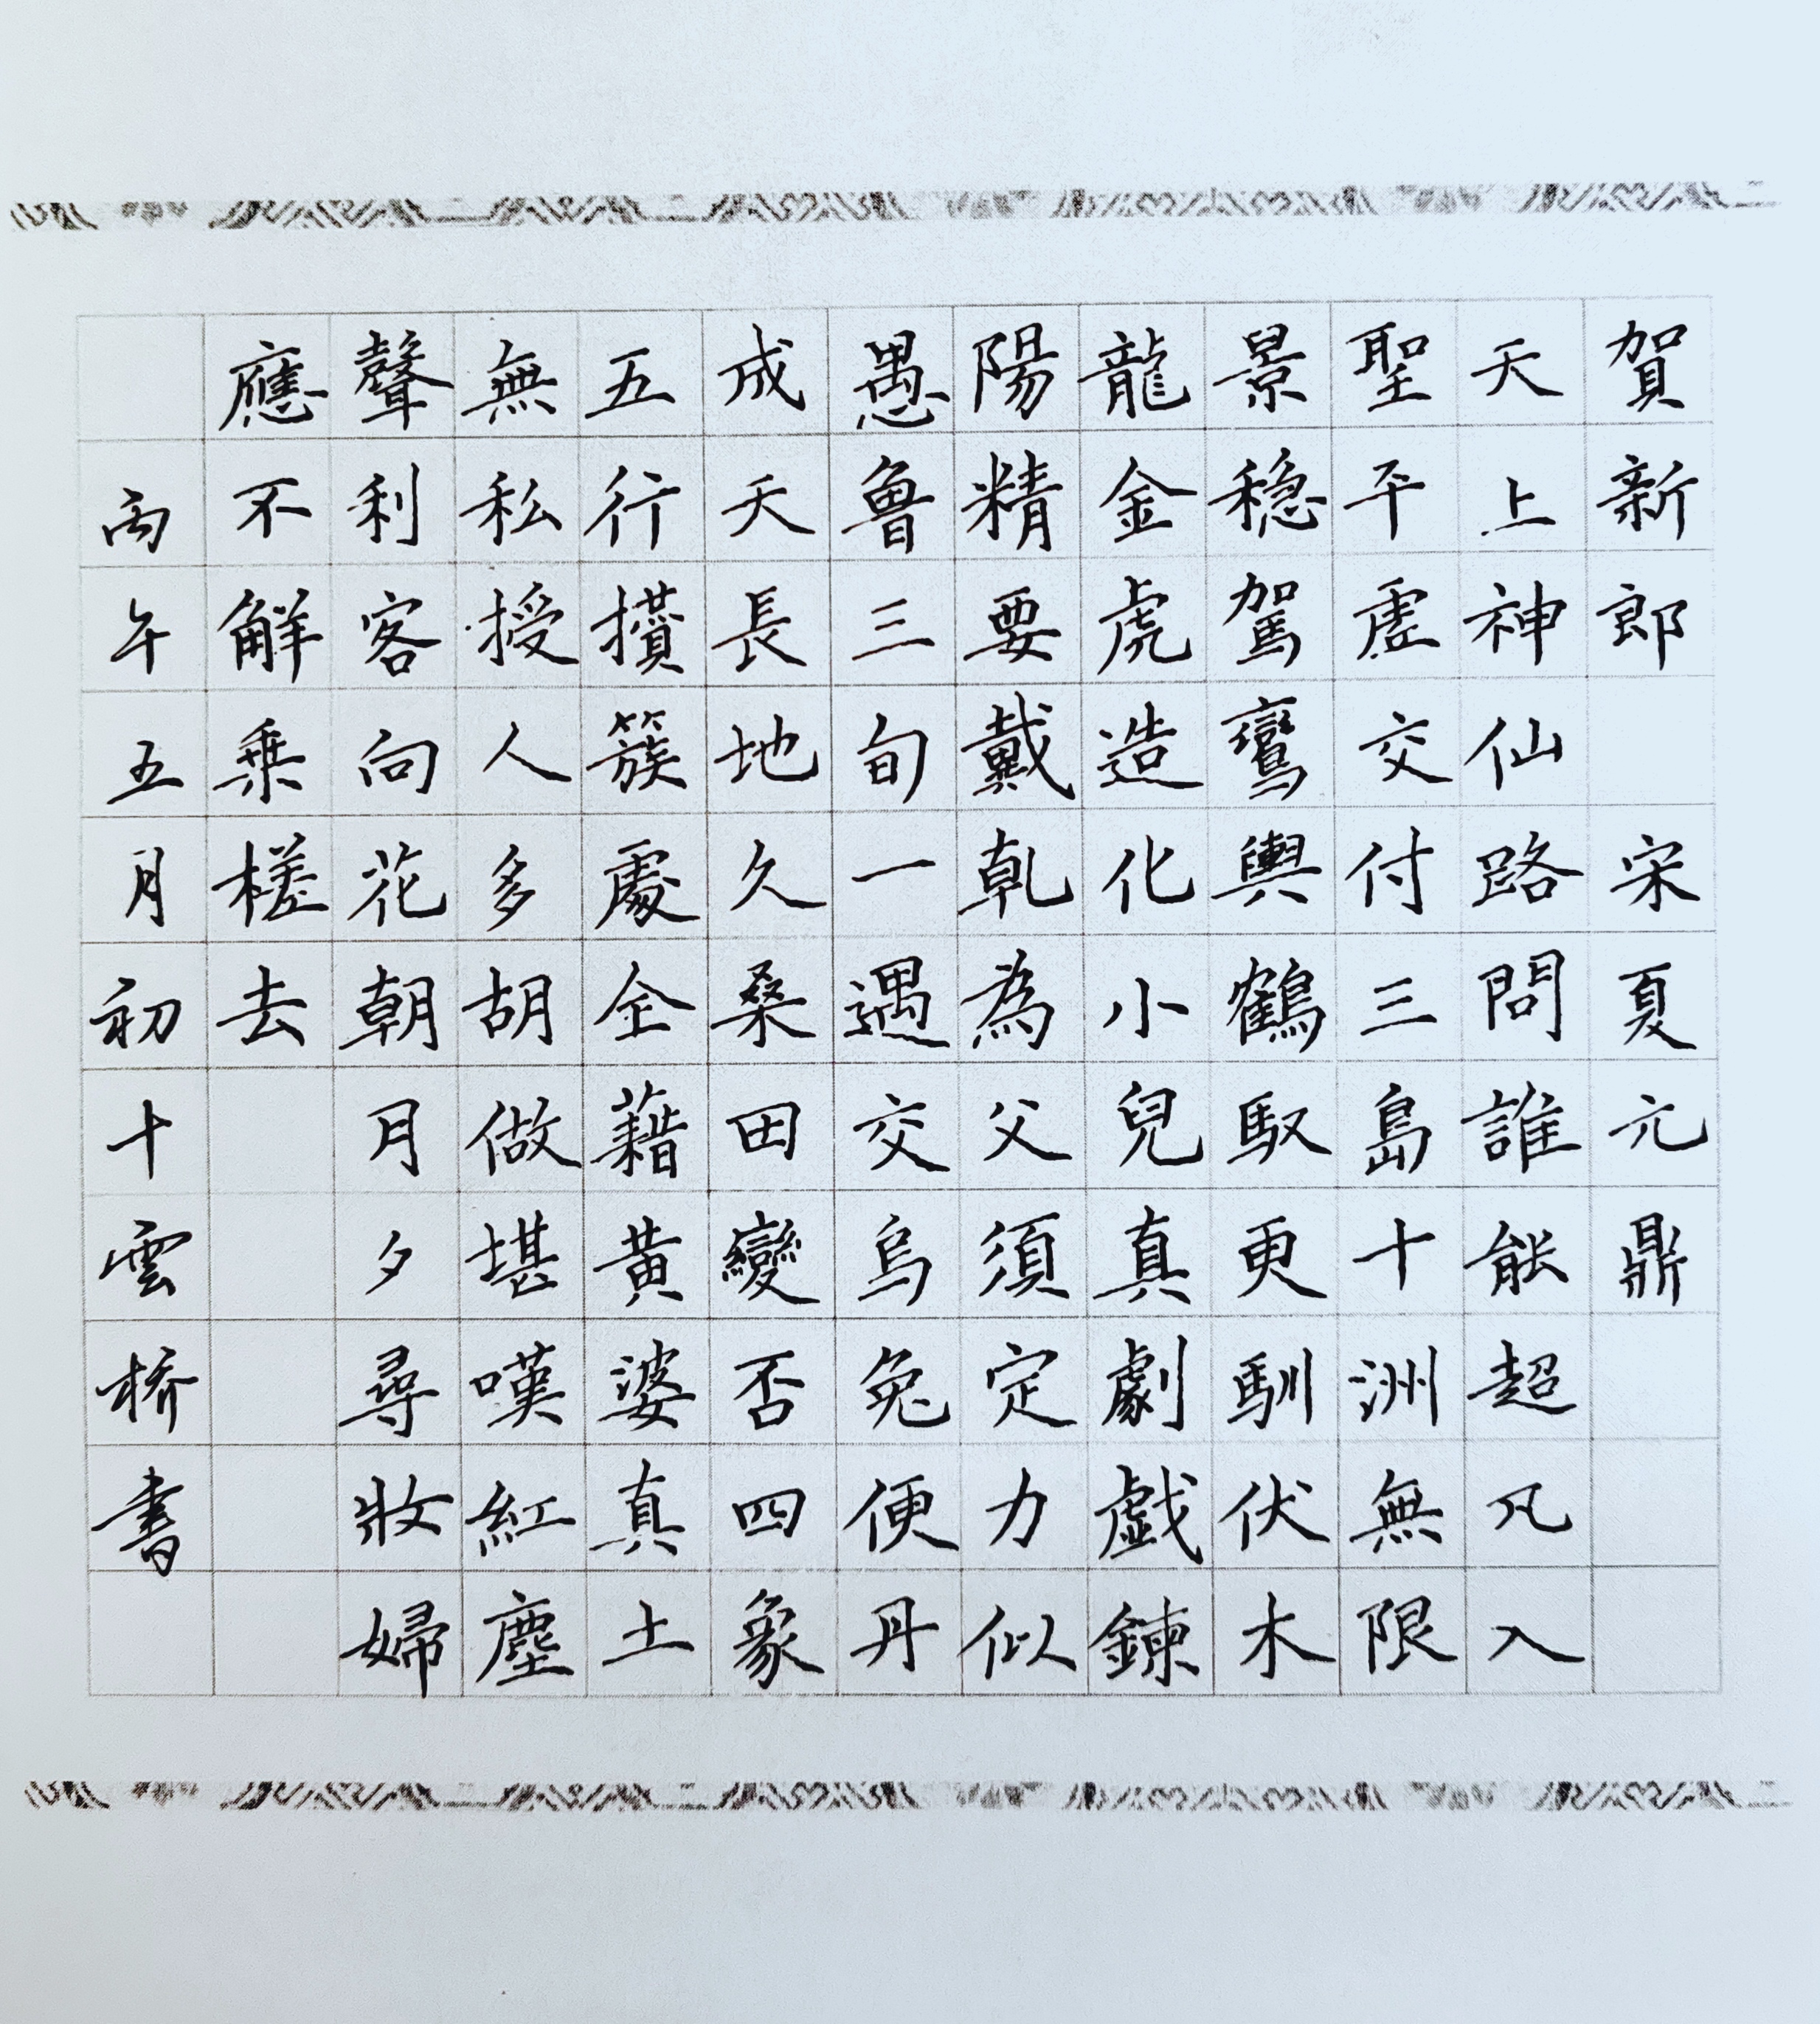 賀新郎 宋 夏元鼎
天上神仙路問誰能超凡入
聖平虛交付三島十洲無限
景穩駕鸞輿鶴馭更馴伏木
龍金虎造化小兒真劇戲鍊
陽精要戴乹為父須定力似
愚魯三旬一遇交烏兔便丹
成天長地久桑田變否四象
五行攢簇處全藉黃婆真土
無私授人多胡做堪嘆紅塵
聲利客向花朝月夕尋妝婦
應不解乘槎去
丙午五月初十雲橋書